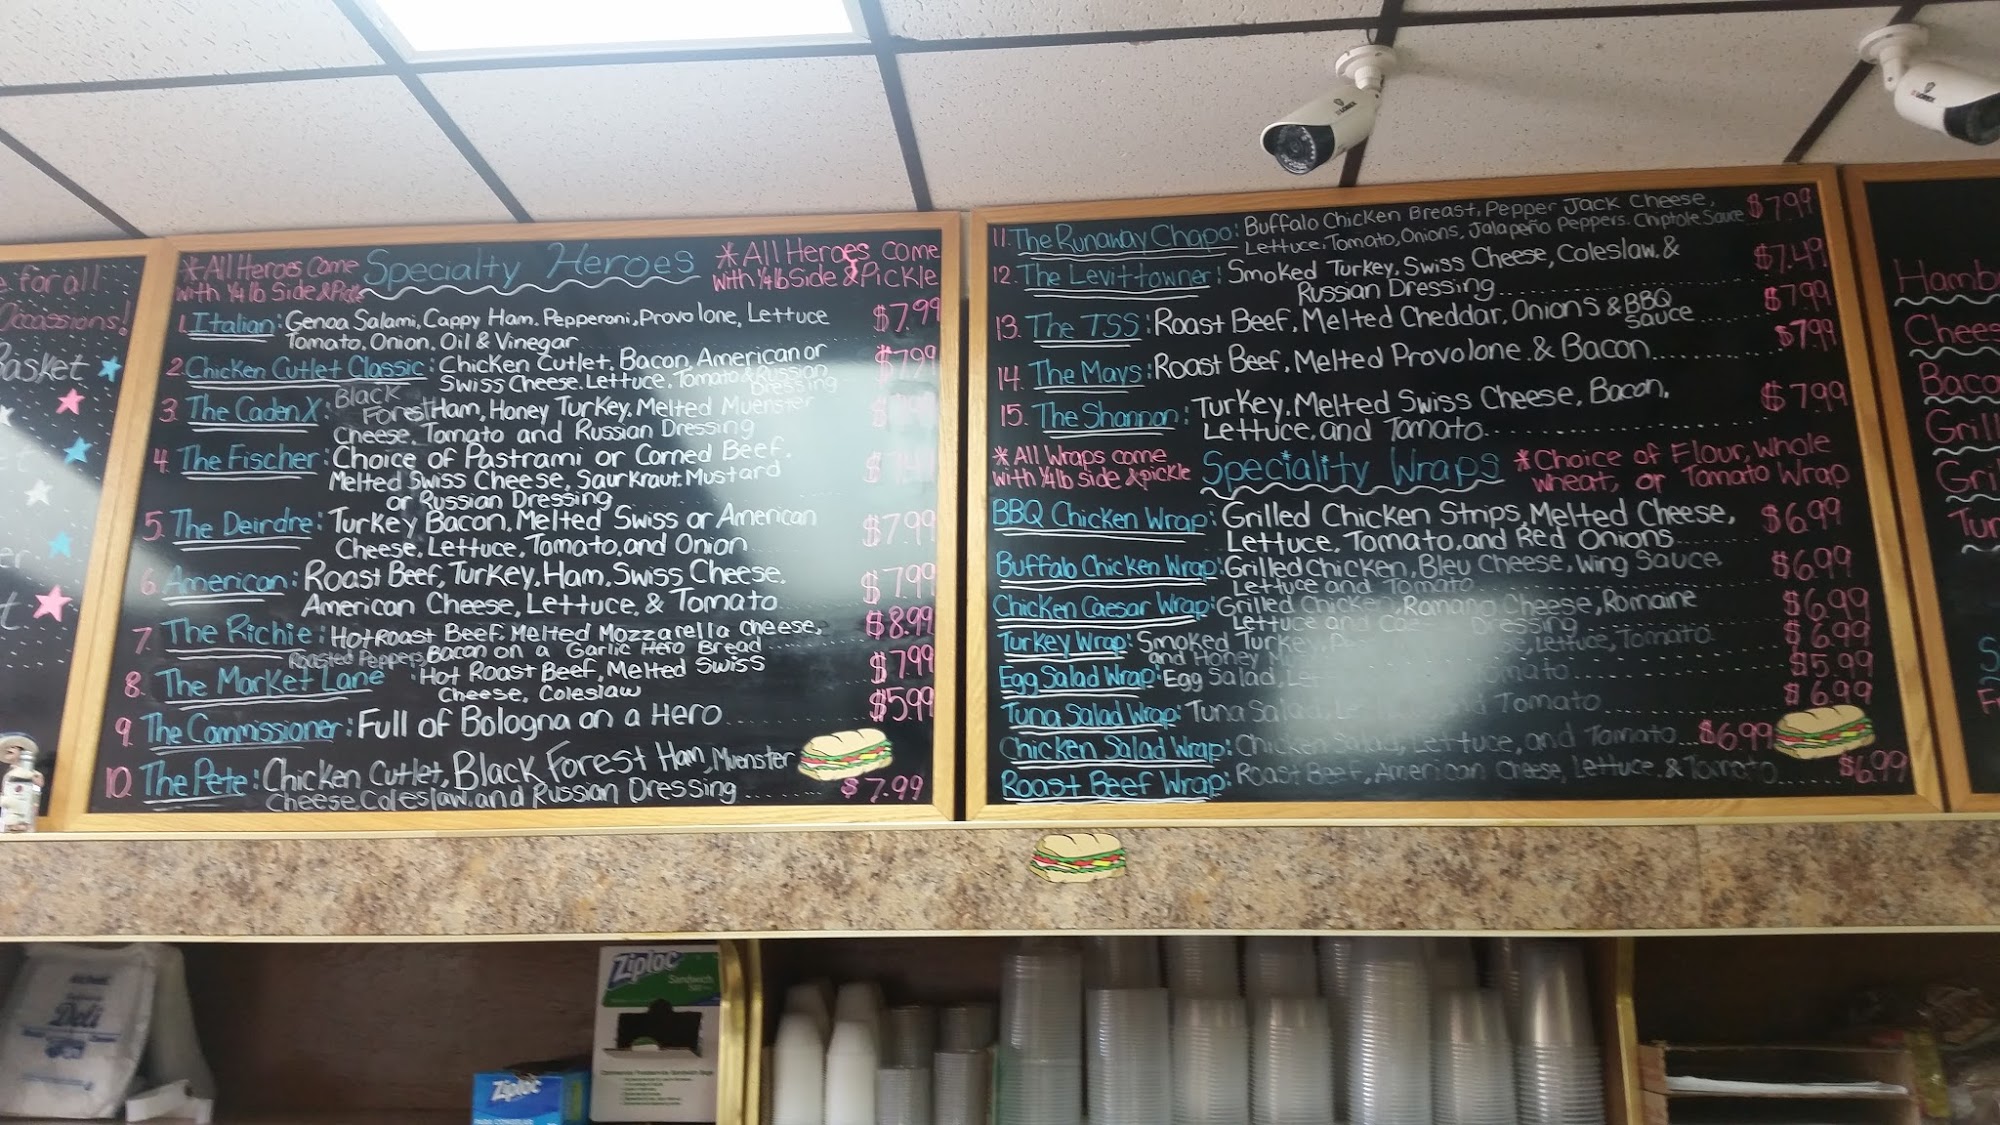 e for all
Occassions!
Basket
* All Heroes Come
with 1/4 lb Side & Pickle
Specialty Heroes
* All Heroes come
with 1/4 lb Side & Pickle
1. Italian: Genoa Salami, Cappy Ham, Pepperoni, Provolone, Lettuce $7.99
Tomato, Onion, Oil & Vinegar
2. Chicken Cutlet Classic: Chicken Cutlet, Bacon, American or $7.99
Swiss Cheese, Lettuce, Tomato & Russian
Dressing
3. The Caden X: Black
Forest Ham, Honey Turkey, Melted Muenster
Cheese, Tomato and Russian Dressing
4. The Fischer: Choice of Pastrami or Corned Beef,
Melted Swiss Cheese, Saurkraut, Mustard
or Russian Dressing
5. The Deirdre: Turkey Bacon, Melted Swiss or American $7.99
Cheese, Lettuce, Tomato, and Onion
6. American: Roast Beef, Turkey, Ham, Swiss Cheese, $7.99
American Cheese, Lettuce, & Tomato
7. The Richie: Hot Roast Beef, Melted Mozzarella cheese, $8.99
Roasted Peppers, Bacon on a Garlic Hero Bread
8. The Market Lane: Hot Roast Beef, Melted Swiss $7.99
Cheese, Coleslaw
9. The Commissioner: Full of Bologna on a Hero $5.99
10. The Pete: Chicken Cutlet, Black Forest Ham, Muenster
Cheese, Coleslaw, and Russian Dressing $7.99
11. The Runaway Chapo: Buffalo Chicken Breast, Pepper Jack Cheese, $7.99
Lettuce, Tomato, Onions, Jalapeño Peppers, Chiptole Sauce
12. The Levittowner: Smoked Turkey, Swiss Cheese, Coleslaw, & $7.49
Russian Dressing
13. The TSS: Roast Beef, Melted Cheddar, Onions & BBQ $7.99
Sauce
14. The Mays: Roast Beef, Melted Provolone & Bacon $7.99
15. The Shannon: Turkey, Melted Swiss Cheese, Bacon, $7.99
Lettuce, and Tomato
* All Wraps come
with 1/4 lb side & pickle
Speciality Wraps
* Choice of Flour, Whole
Wheat, or Tomato Wrap
BBQ Chicken Wrap: Grilled Chicken Strips, Melted Cheese, $6.99
Lettuce, Tomato, and Red Onions
Buffalo Chicken Wrap: Grilled Chicken, Bleu Cheese, Wing Sauce $6.99
Lettuce and Tomato
Chicken Caesar Wrap: Grilled Chicken, Romano Cheese, Romaine $6.99
Lettuce and Caesar Dressing
Turkey Wrap: Smoked Turkey, Lettuce, Tomato $6.99
and Honey
Egg Salad Wrap: Egg Salad, Tomato $5.99
Tuna Salad Wrap: Tuna Salad, and Tomato $6.99
Chicken Salad Wrap: Chicken Salad, Lettuce, and Tomato $6.99
Roast Beef Wrap: Roast Beef, American Cheese, Lettuce, & Tomato $6.99
Hamb
Chees
Baco
Grill
Gri
Tur
Deli
Ziploc
Sandwich
Ziploc